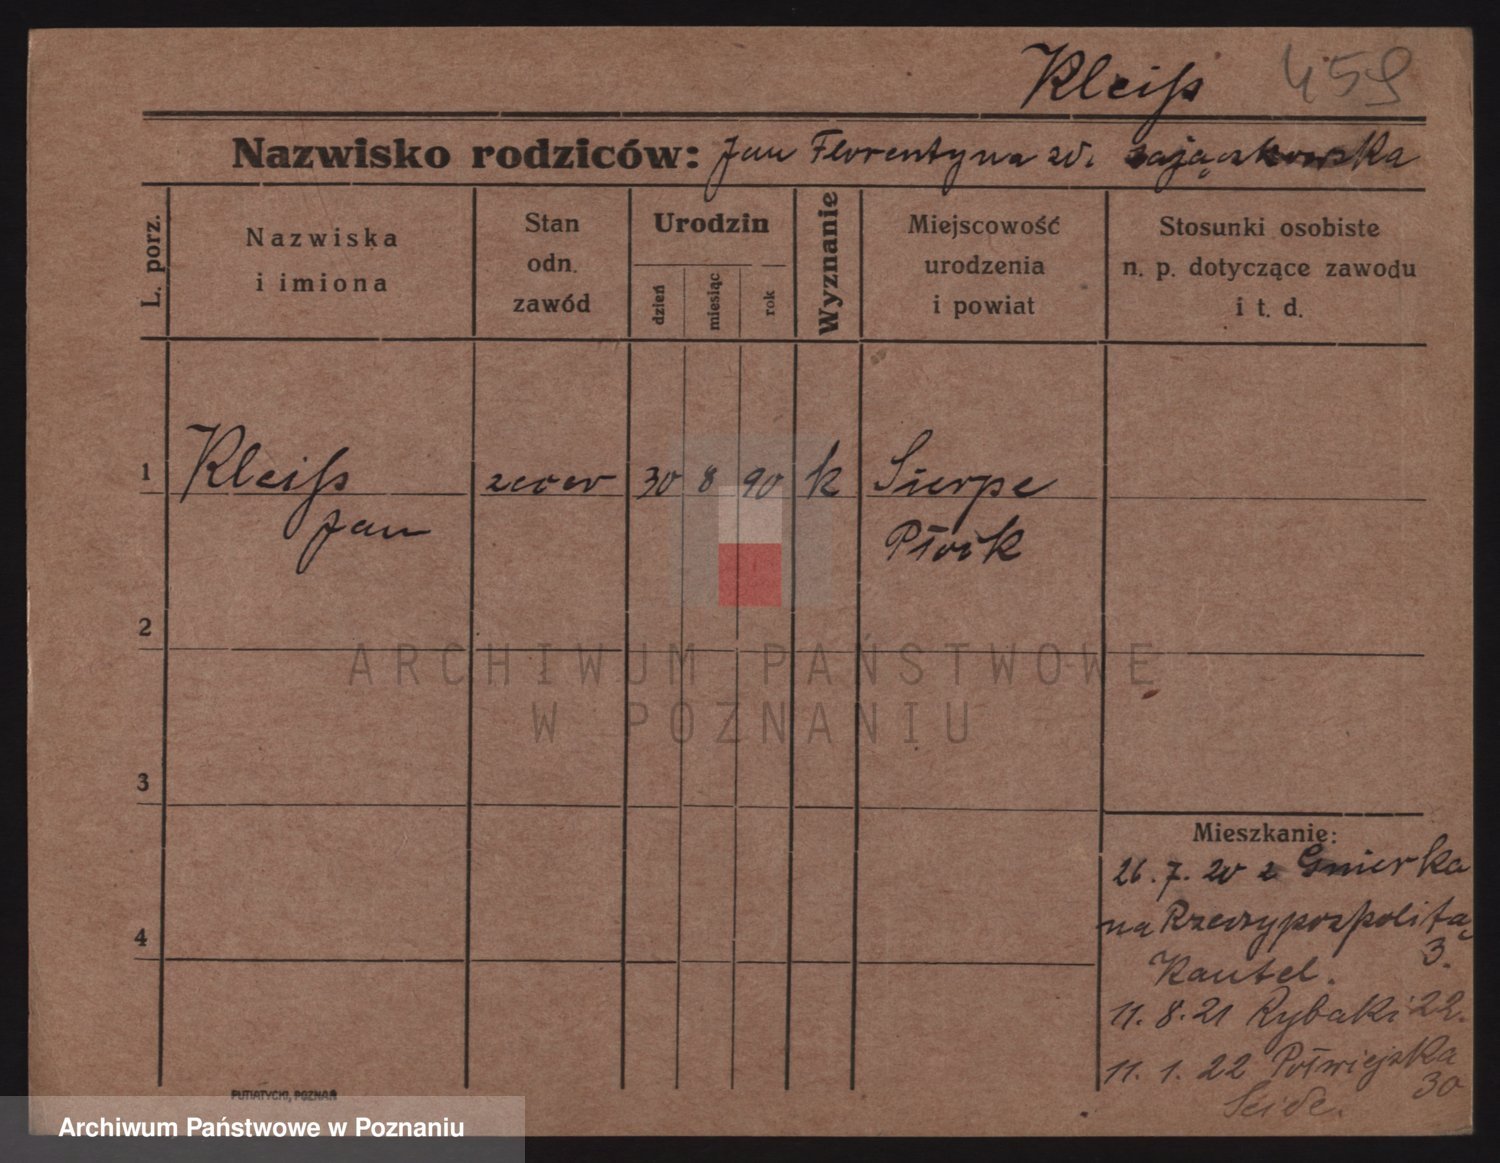 Kleiß 459
Nazwisko rodziców: Jan Florentyna zd. Zajączkowska
L. porz.
Nazwiska
i imiona
Stan
odn.
zawód
Urodzin
dzień
miesiąc
rok
Wyznanie
Miejscowość
urodzenia
i powiat
Stosunki osobiste
n. p. dotyczące zawodu
i t. d.
1 Kleiß 30 8 90 k Sierpc
Jan Płock
2
3
4
Mieszkanie:
26. 7. 20 z
na Rzeczypospolitą
3.
Kantel.
11. 8. 21 Rybaki 22.
11. 1. 22 Półwiejska
30
Seide.
PUTIATYCKI, POZNAŃ
ARCHIWUM PAŃSTWOWE
W POZNANIU
Archiwum Państwowe w Poznaniu